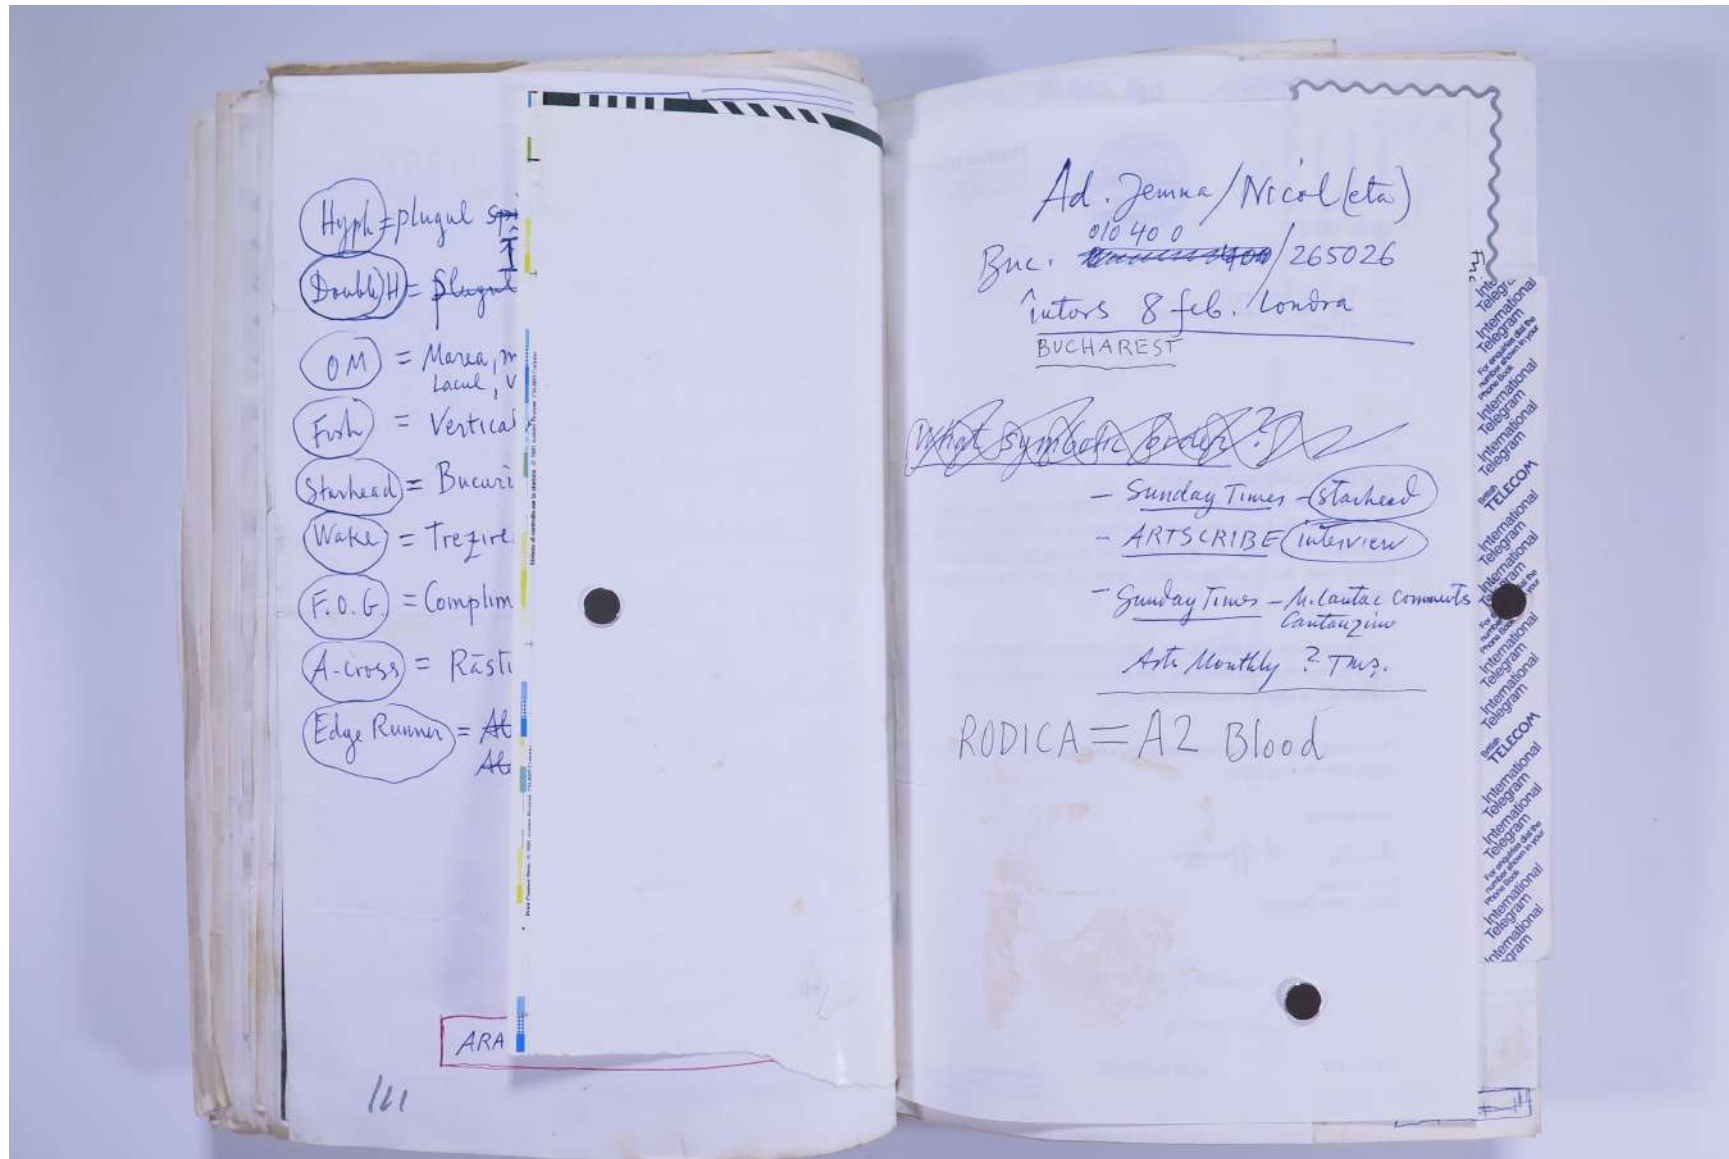 Hyph = plugul
Double H = plugul
OM = Marea, m
Lacul, V
Fish = Vertical
Starhead = Bucuri
Wake = Trezire
F.O.G. = Complim
A-cross = Răsti
Edge Runner = Al
Ale
ARA
Ad. Jemna / Nicol(eta)
010 40 0
Buc. /265026
întors 8 feb. Londra
BUCHAREST
What symbolic order?
- Sunday Times - starhead
- ARTSCRIBE interview
- Sunday Times - comments
Arts Monthly ?
RODICA = A2 Blood
International
Telegram
For enquiries dial the
number shown in your
Phone Book
International
Telegram
International
Telegram
International
Telegram
British
TELECOM
International
Telegram
International
Telegram
International
Telegram
International
Telegram
British
TELECOM
International
Telegram
International
Telegram
For enquiries dial the
number shown in your
Phone Book
International
Telegram
International